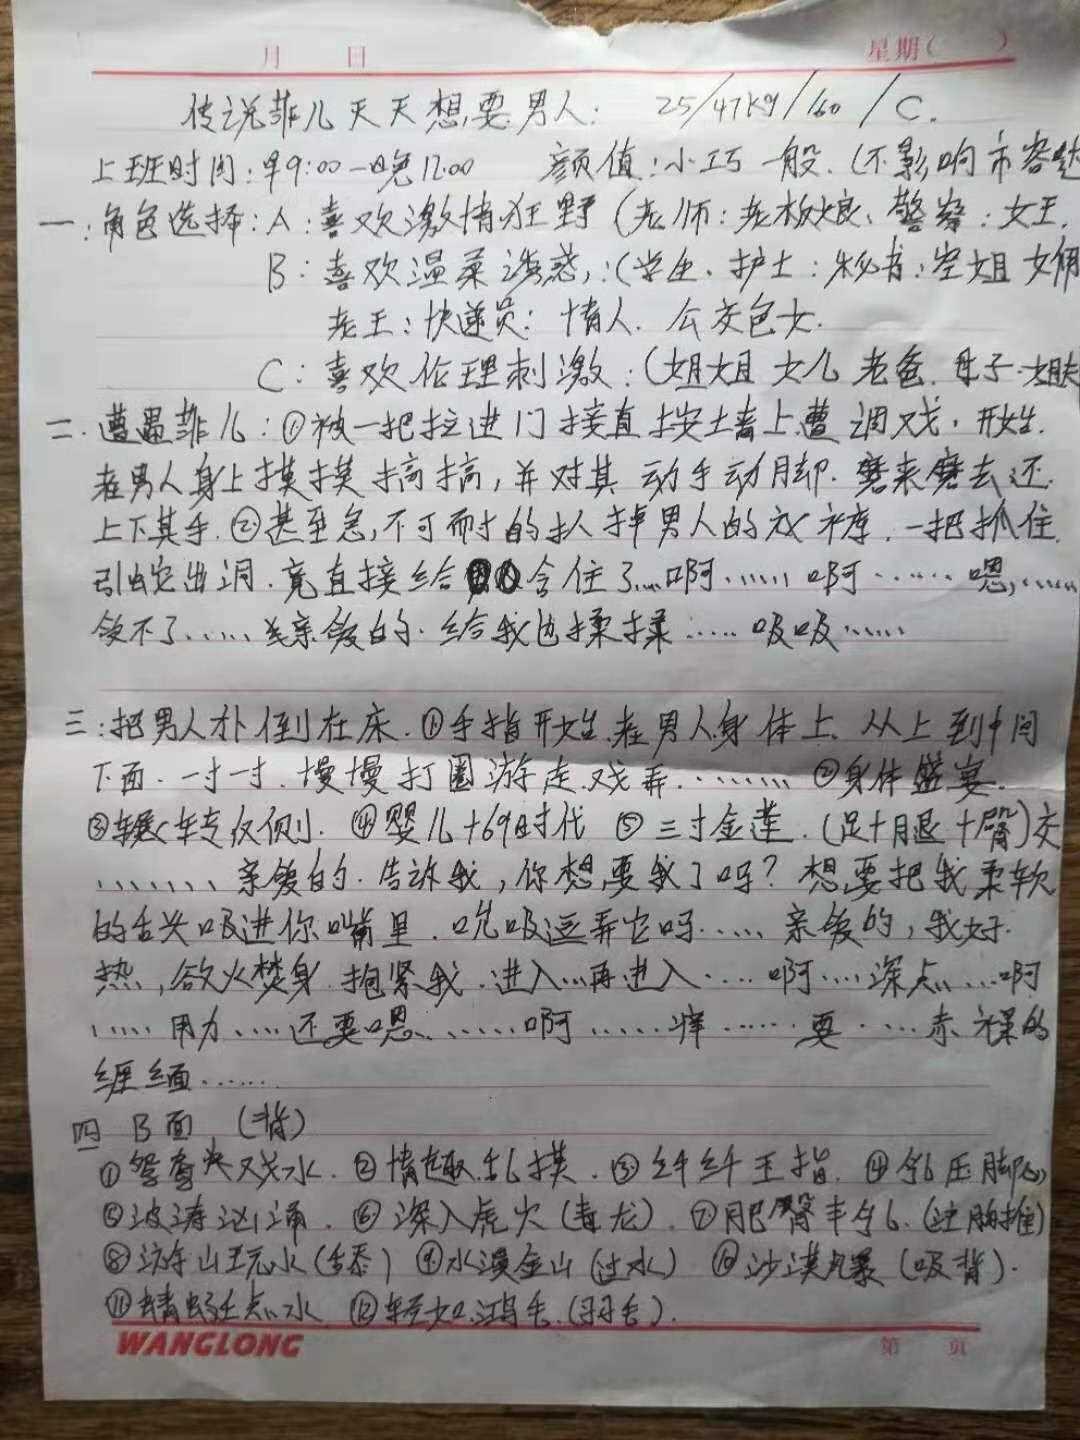 月 日 星期( )
传说菲儿天天想要男人: 25/47kg/160/C.
上班时间:早9:00—晚12:00 颜值:小巧一般.(不影响市容
一:角色选择:A:喜欢激情狂野(老师:老板娘、警察:女王.
B:喜欢温柔诱惑:(学生、护士:秘书:空姐 女佣
老王:快递员:情人.公交色女.
C:喜欢伦理刺激:(姐姐 女儿 老爸.母子.
二.遭遇菲儿:①被一把拉进门接直按土墙上遭调戏,开始.
在男人身上摸摸搞搞,并对其动手动脚.磨来磨去还.
上下其手.②甚至急,不可耐的扒掉男人的衣裤.一把抓住.
引蛇出洞.竟直接给含住了....啊...... 啊........嗯,......
受不了......亲爱的.给我也揉揉......吸吸......
三:把男人扑倒在床.①手指开始在男人身体上、从上到中间
下面.一寸一寸.慢慢打圈游走.戏弄......... ②身体盛宴.
③辗转反侧.④婴儿+69时代 ⑤三寸金莲.(足+腿+臀)交
........亲爱的.告诉我,你想要我了吗?想要把我柔软
的舌头吸进你嘴里.吮吸逗弄它吗......亲爱的,我好.
热,欲火焚身.抱紧我.进入...再进入.....啊....深点....啊
.....用力....还要嗯.......啊......痒......要.....赤裸的
缠绵......
四 B面 (背)
①鸳鸯戏水.②情趣乱摸.③纤纤玉指.④乳压脚心
⑤波涛汹涌.⑥深入虎穴(毒龙).⑦肥臀丰乳.(胸推)
⑧游山玩水(舌舔)⑨水漫金山(过水) ⑩沙漠风暴(吸背).
⑪蜻蜓点水 ⑫轻如鸿毛.(羽毛).
WANGLONG 第 页